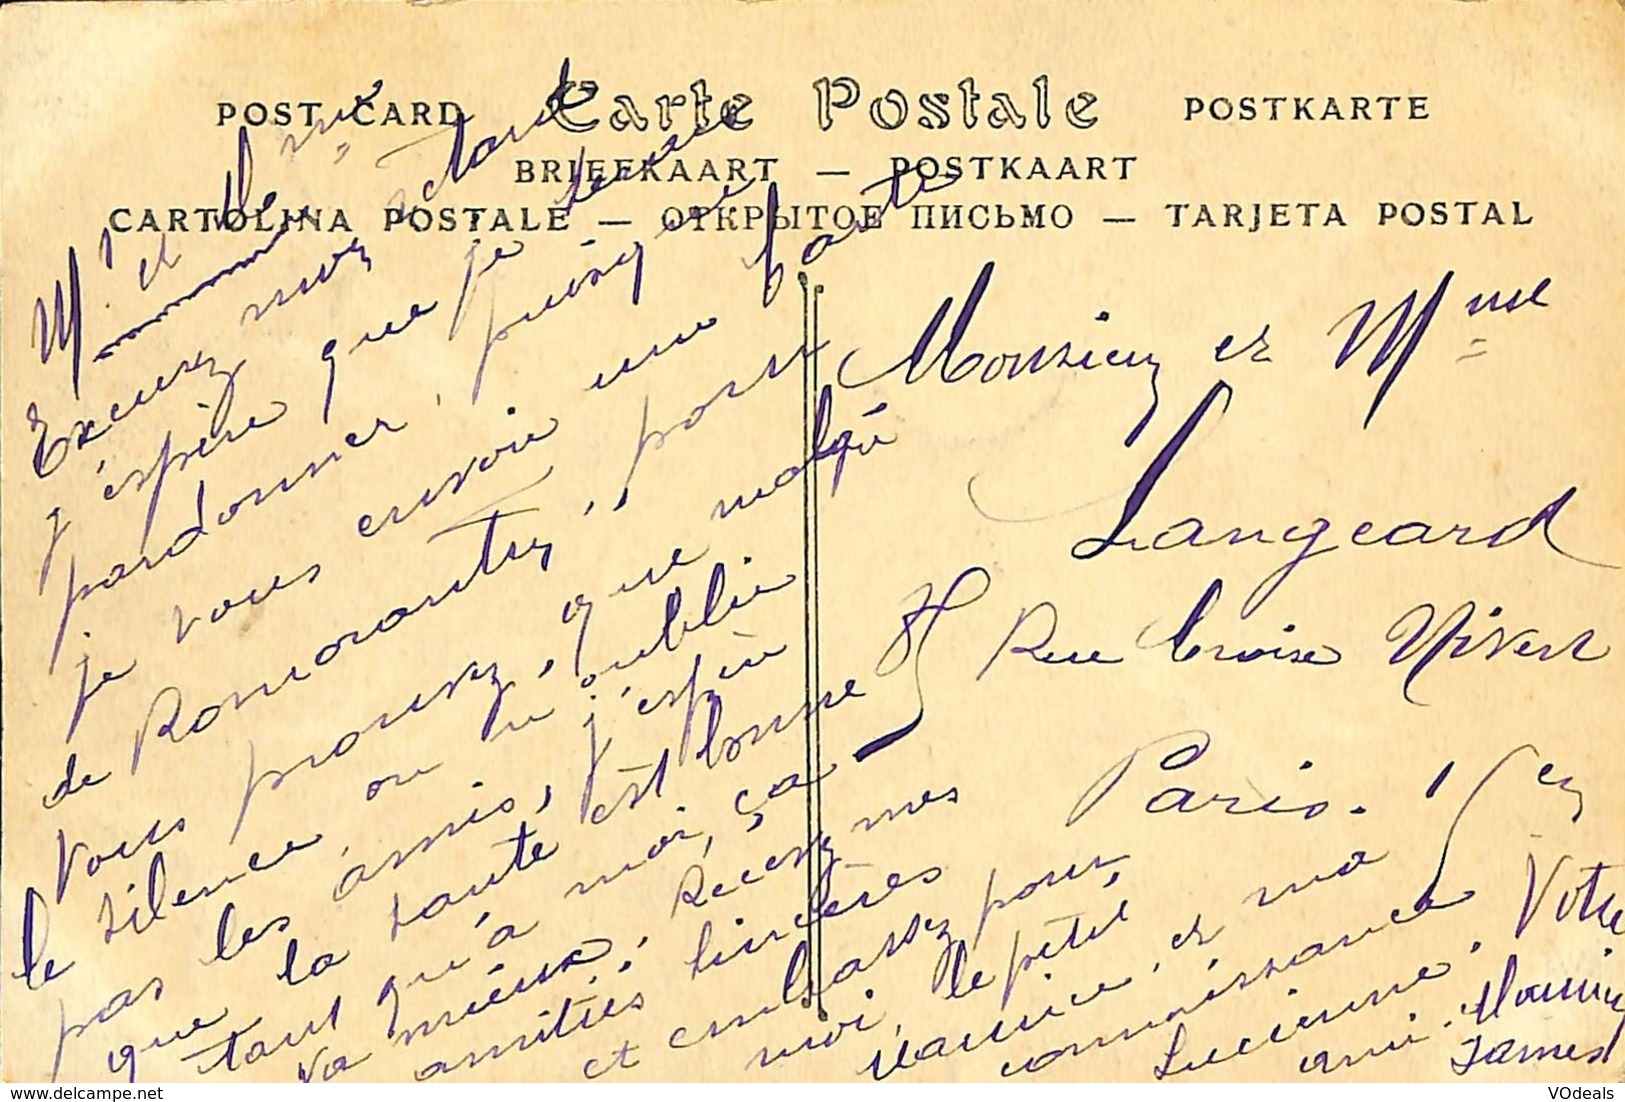 POST CARD Carte Postale POSTKARTE
BRIEFKAART — POSTKAART
CARTOLINA POSTALE — ОТКРЫТОЕ ПИСЬМО — TARJETA POSTAL
Mr et Me
Excusez mon retard
j'éspère que je serai
pardonner, puisque
je vous envoie une carte
de Romorantin, pour
vous prouvez, que malgré
le silence, on n'oublie
pas les amis, j'espère
que la santé est bonne
tant qu'à moi, ça
va mieux; Recevez mes
amitiés sincères
et embrassez pour
moi, le petit
Maurice, et ma
connaissance
Lucienne. Votre
ami. Maurice
James
Monsieur et Mme
Langeard
Rue Croix Nivert
Paris. 15em
VOdeals